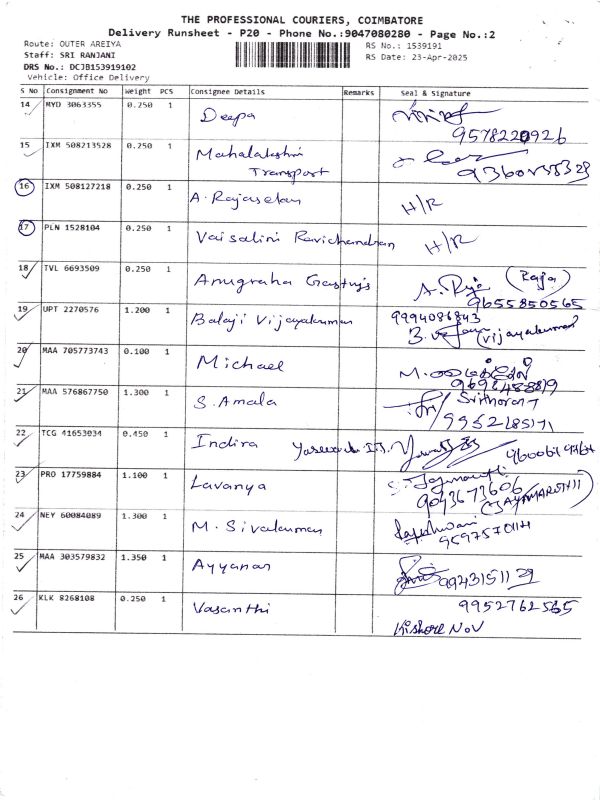 THE PROFESSIONAL COURIERS, COIMBATORE
Delivery Runsheet - P20 - Phone No.:9047080280 - Page No.:2
Route: OUTER AREIYA RS No.: 1539191
Staff: SRI RANJANI RS Date: 23-Apr-2025
DRS No.: DCJB153919102
Vehicle: Office Delivery
S No Consignment No Weight PCS Consignee Details Remarks Seal & Signature
14 MYD 3063355 0.250 1 Deepa
9578220926
15 IXM 508213528 0.250 1 Mahalakshmi
Transport
16 IXM 508127218 0.250 1 A. Rajaselan H/R
17 PLN 1528104 0.250 1 Vaisalini Ravichandran H/R
18 TVL 6693509 0.250 1 Anugraha A. Raja (Raja)
9655850565
19 UPT 2270576 1.200 1 Balaji Vijayakumar 9994086843
(Vijayakumar)
20 MAA 705773743 0.100 1 Michael
21 MAA 576867750 1.300 1 S. Amala
22 TCG 41653034 0.450 1 Indira
23 PRO 17759884 1.100 1 Lavanya
9043673606
24 NEY 60084089 1.300 1 M. Sivakumar
25 MAA 303579832 1.350 1 Ayyanar
26 KLK 8268108 0.250 1 Vasanthi 9952762565
Kishore